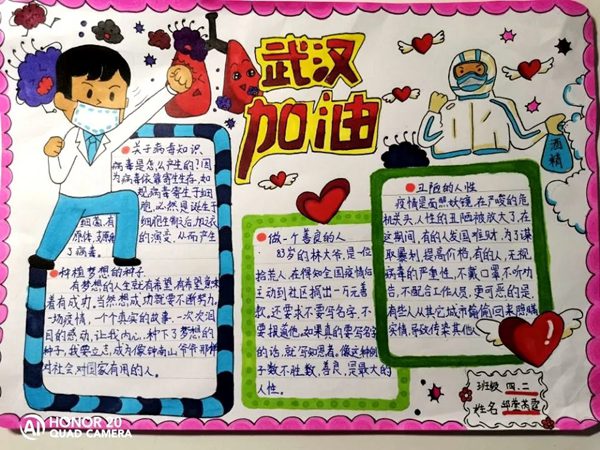 武汉
加油
关于病毒知识
病毒是怎么产生的?因
为病毒依靠寄生生存,如
现病毒寄生于细
胞,必然是诞生于
细菌,有细胞生物之后,加衣
原体,支原体的演变,从而产生
了病毒。
种植梦想的种子
有梦想的人生就有希望,有希望意味
着有成功,当然想成功就要不断努力。
一场疫情,一个个真实的故事,一次次泪
目的感动,让我内心,种下了梦想的
种子,我要立志,成为像钟南山爷爷那样
对社会对国家有用的人。
做一个善良的人
83岁的林大爷,是一位
拾荒人,在得知全国疫情后
主动到社区捐出一万元善
款,还要求不要写名字,不
要报道他,如果真的要写名字
的话,就写知恩者,像这种例
子数不胜数,善良,是最大的
人性。
丑陋的人性
疫情是面照妖镜,在严峻的危
机关头,人性的丑陋被放大了,在
这期间,有的人发国难财,为了谋
取暴利,提高价格,有的人,无视
病毒的严重性,不戴口罩,不听劝
告,不配合工作人员,更可恶的是
有些人从其它城市偷偷回来隐瞒
实情,导致传染其他人
酒精
班级 四.二
姓名
AI HONOR 20
QUAD CAMERA